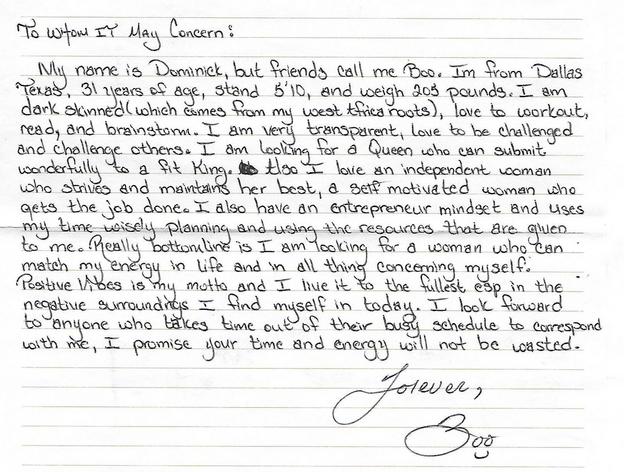 To Whom IT May Concern:
My name is Dominick, but friends call me Boo. Im from Dallas
Texas, 31 years of age, stand 5'10, and weigh 205 pounds. I am
dark skinned (which comes from my west Africa roots), love to workout,
read, and brainstorm. I am very transparent, love to be challenged
and challenge others. I am looking for a Queen who can submit
wonderfully to a fit King. Also I love an independent woman
who strives and maintains her best, a self motivated woman who
gets the job done. I also have an entrepreneur mindset and uses
my time wisely planning and using the resources that are given
to me. Really bottomline is I am looking for a woman who can
match my energy in life and in all thing concerning myself.
Positive Vibes is my motto and I live it to the fullest esp in the
negative surroundings I find myself in today. I look forward
to anyone who takes time out of their busy schedule to correspond
with me, I promise your time and energy will not be wasted.
Forever,
Boo